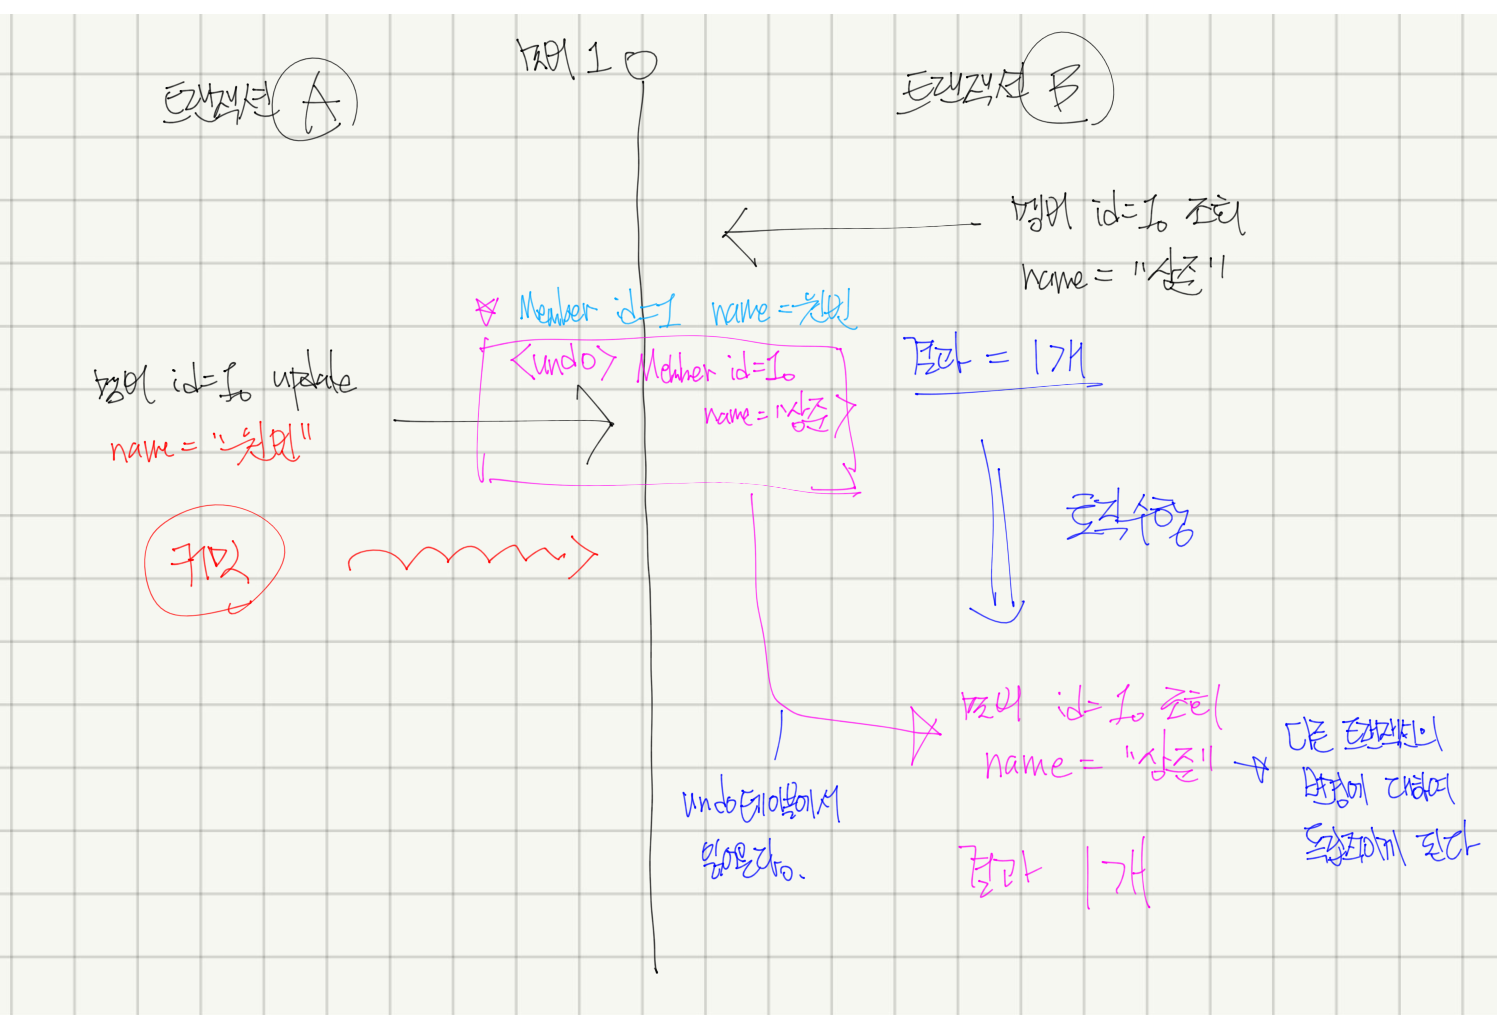 멤버 1
트랜잭션 A
트랜잭션 B
멤버 id=1 조회
name = "상준"
Member id=1 name = 원빈
<undo> Member id=1
name = "상준"
멤버 id=1 update
name = "원빈"
커밋
결과 = 1개
로직수행
멤버 id=1 조회
name = "상준"
결과 1개
undo테이블에서
읽어온다.
다른 트랜잭션의
변경에 대하여
독립적이게 된다